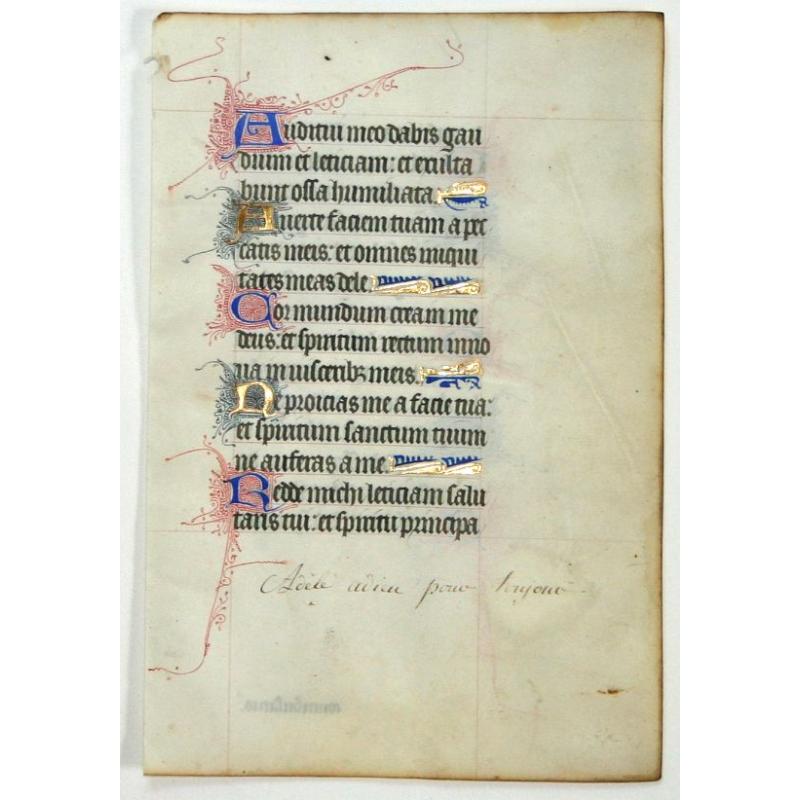 Auditui meo dabis gau
dium et leticiam: et exulta
bunt ossa humiliata.
Auerte faciem tuam a pec
catis meis: et omnes iniqui
tates meas dele.
Cor mundum crea in me
deus: et spiritum rectum inno
ua in uisceribꝫ meis.
Ne proicias me a facie tua:
et sp̄iritum sanctum tuum
ne auferas a me.
Redde michi leticiam salu
taris tui: et spiritu principa
Adèle adieu pour toujours